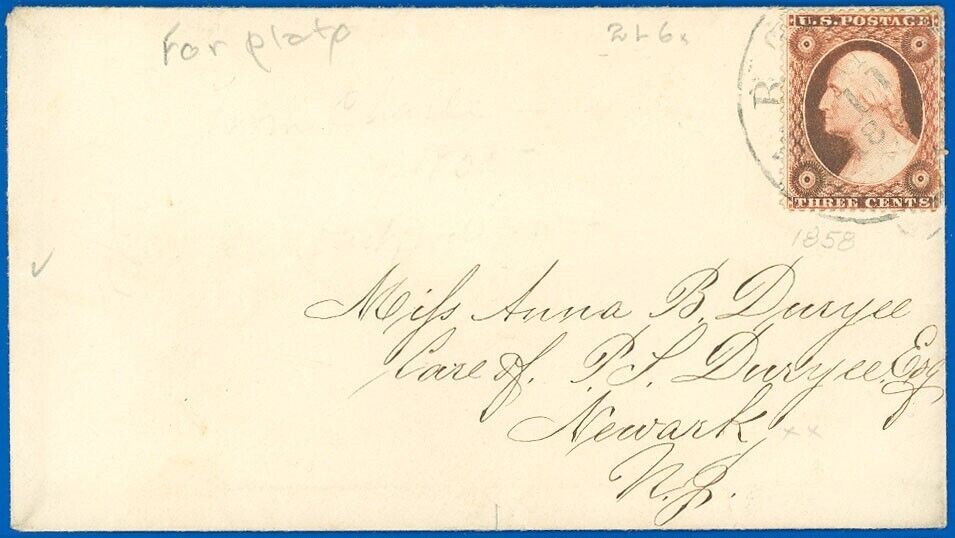 For plate
2L6x
U.S. POSTAGE
THREE CENTS
1858
Miss Anna B. Duryee
Care of. P. S. Duryee Esq
Newark
xx
N.J.